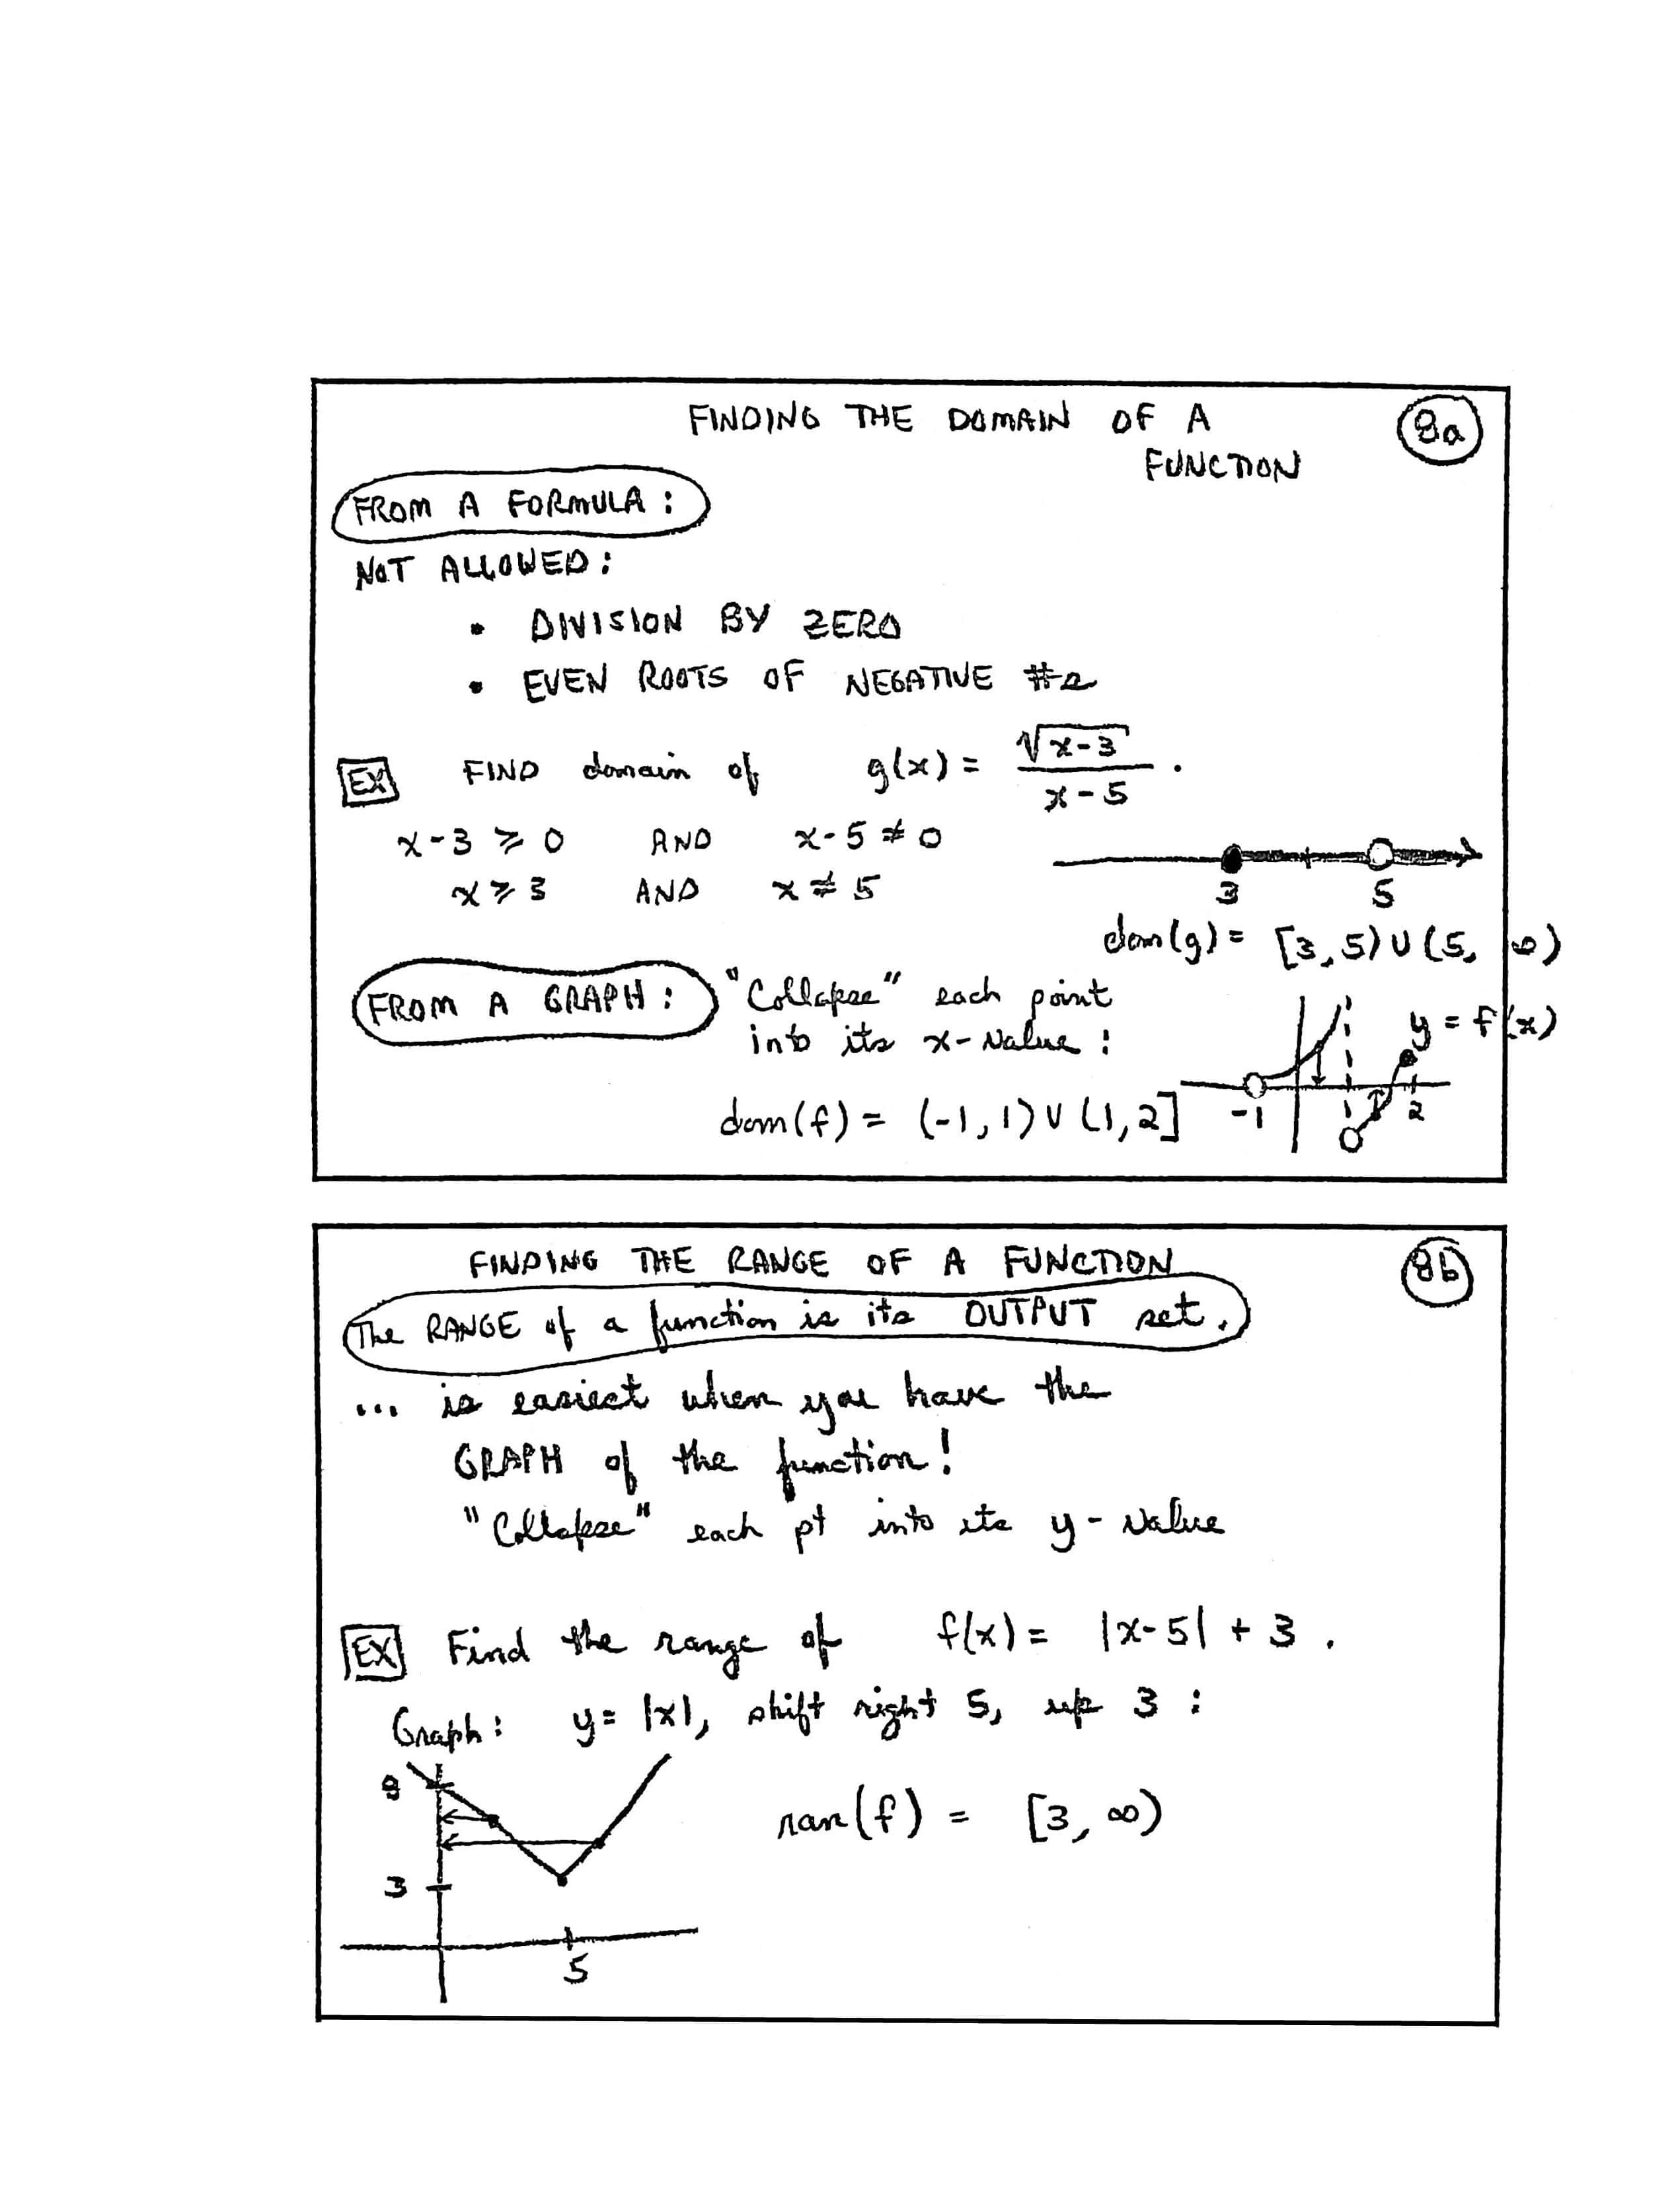 FINDING THE DOMAIN OF A
FUNCTION
8a
FROM A FORMULA:
NOT ALLOWED:
• DIVISION BY ZERO
• EVEN ROOTS OF NEGATIVE #s
EX FIND domain of g(x) = √(x-3) / (x-5) .
x-3 ≥ 0 AND x-5 ≠ 0
x ≥ 3 AND x ≠ 5
3 5
dom(g) = [3,5) ∪ (5, ∞)
FROM A GRAPH: "Collapse" each point
into its x-value:
y = f(x)
dom(f) = (-1,1) ∪ (1,2]
-1 1 2
FINDING THE RANGE OF A FUNCTION
8b
The RANGE of a function is its OUTPUT set.
... is easiest when you have the
GRAPH of the function!
"Collapse" each pt into its y-value
EX Find the range of f(x) = |x-5| + 3 .
Graph: y = |x|, shift right 5, up 3 :
8
ran(f) = [3, ∞)
3
5